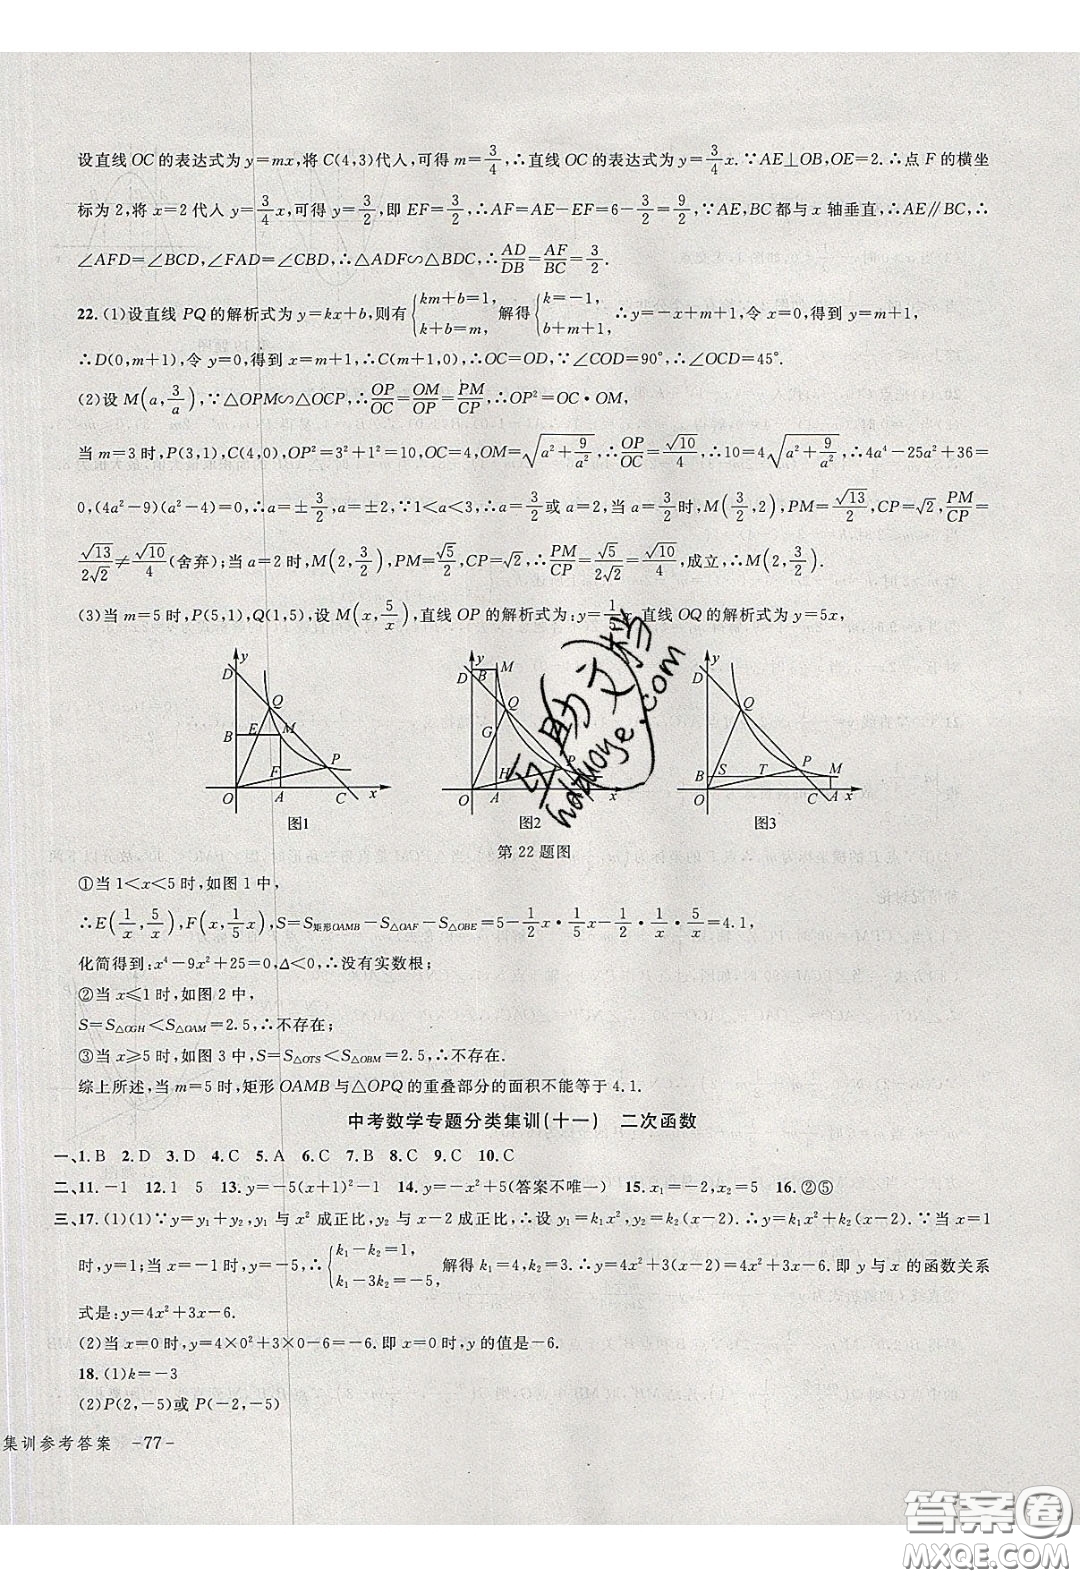 设直线 OC 的表达式为 y=mx,将 C(4,3)代人,可得 m=3/4,∴直线 OC 的表达式为 y=3/4x.∵AE⊥OB,OE=2.∴点 F 的横坐
标为 2,将 x=2 代人 y=3/4x,可得 y=3/2,即 EF=3/2,∴AF=AE-EF=6-3/2=9/2,∵AE,BC 都与 x 轴垂直,∴AE∥BC,∴
∠AFD=∠BCD,∠FAD=∠CBD,∴△ADF∽△BDC,∴AD/DB=AF/BC=3/2.
22.(1)设直线 PQ 的解析式为 y=kx+b,则有{km+b=1, k+b=m, 解得{k=-1, b=m+1, ∴y=-x+m+1,令 x=0,得到 y=m+1,
∴D(0,m+1),令 y=0,得到 x=m+1,∴C(m+1,0),∴OC=OD,∵∠COD=90°,∴∠OCD=45°.
(2)设 M(a,3/a),∵△OPM∽△OCP,∴OP/OC=OM/OP=PM/CP,∴OP²=OC·OM,
当 m=3 时,P(3,1),C(4,0),OP²=3²+1²=10,OC=4,OM=√(a²+9/a²),∴OP/OC=√10/4,∴10=4√(a²+9/a²),∴4a⁴-25a²+36=
0,(4a²-9)(a²-4)=0,∴a=±3/2,a=±2,∵1<a<3,∴a=3/2或 a=2,当 a=3/2时,M(3/2,2),PM=√13/2,CP=√2,PM/CP=
√13/2√2≠√10/4(舍弃);当 a=2 时,M(2,3/2),PM=√5/2,CP=√2,∴PM/CP=√5/2√2=√10/4,成立,∴M(2,3/2).
(3)当 m=5 时,P(5,1),Q(1,5),设 M(x,5/x),直线 OP 的解析式为:y=1/5x,直线 OQ 的解析式为 y=5x,
y D Q B E M F P O A C x
y D B M Q G H P O A
y D Q B S T P M O C A x
图1 图2 图3
第 22 题图
①当 1<x<5 时,如图 1 中,
∴E(1/x,5/x),F(x,1/5x),S=S矩形OAMB-S△OAF-S△OBE=5-1/2x·1/5x-1/2·1/x·5/x=4.1,
化简得到:x⁴-9x²+25=0,Δ<0,∴没有实数根;
②当 x≤1 时,如图 2 中,
S=S△OGH<S△OAM=2.5,∴不存在;
③当 x≥5 时,如图 3 中,S=S△OTS<S△OBM=2.5,∴不存在.
综上所述,当 m=5 时,矩形 OAMB 与△OPQ 的重叠部分的面积不能等于 4.1.
中考数学专题分类集训(十一) 二次函数
一、1.B 2.D 3.D 4.C 5.A 6.C 7.B 8.C 9.C 10.C
二、11.-1 12.1 5 13.y=-5(x+1)²-1 14.y=-x²+5(答案不唯一) 15.x₁=-2,x₂=5 16.②⑤
三、17.(1)(1)∵y=y₁+y₂,y₁ 与 x² 成正比,y₂ 与 x-2 成正比,∴设 y₁=k₁x²,y₂=k₂(x-2).∴y=k₁x²+k₂(x-2).∵当 x=1
时,y=1;当 x=-1 时,y=-5,∴{k₁-k₂=1, k₁-3k₂=-5, 解得 k₁=4,k₂=3.∴y=4x²+3(x-2)=4x²+3x-6.即 y 与 x 的函数关系
式是:y=4x²+3x-6.
(2)当 x=0 时,y=4×0²+3×0-6=-6.即 x=0 时,y 的值是-6.
18.(1)k=-3
(2)P(2,-5)或 P(-2,-5)
集训参考答案 -77-
互助文档
hdzuoye.com
答案圈
MXQE.COM